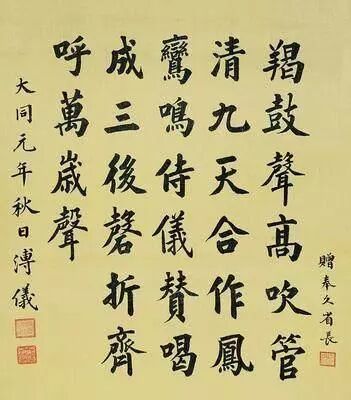 贈奉久省長
羯鼓聲高吹管
清九天合作鳳
鸞鳴侍儀贊喝
成三後磬折齊
呼萬歲聲
大同元年秋日溥儀